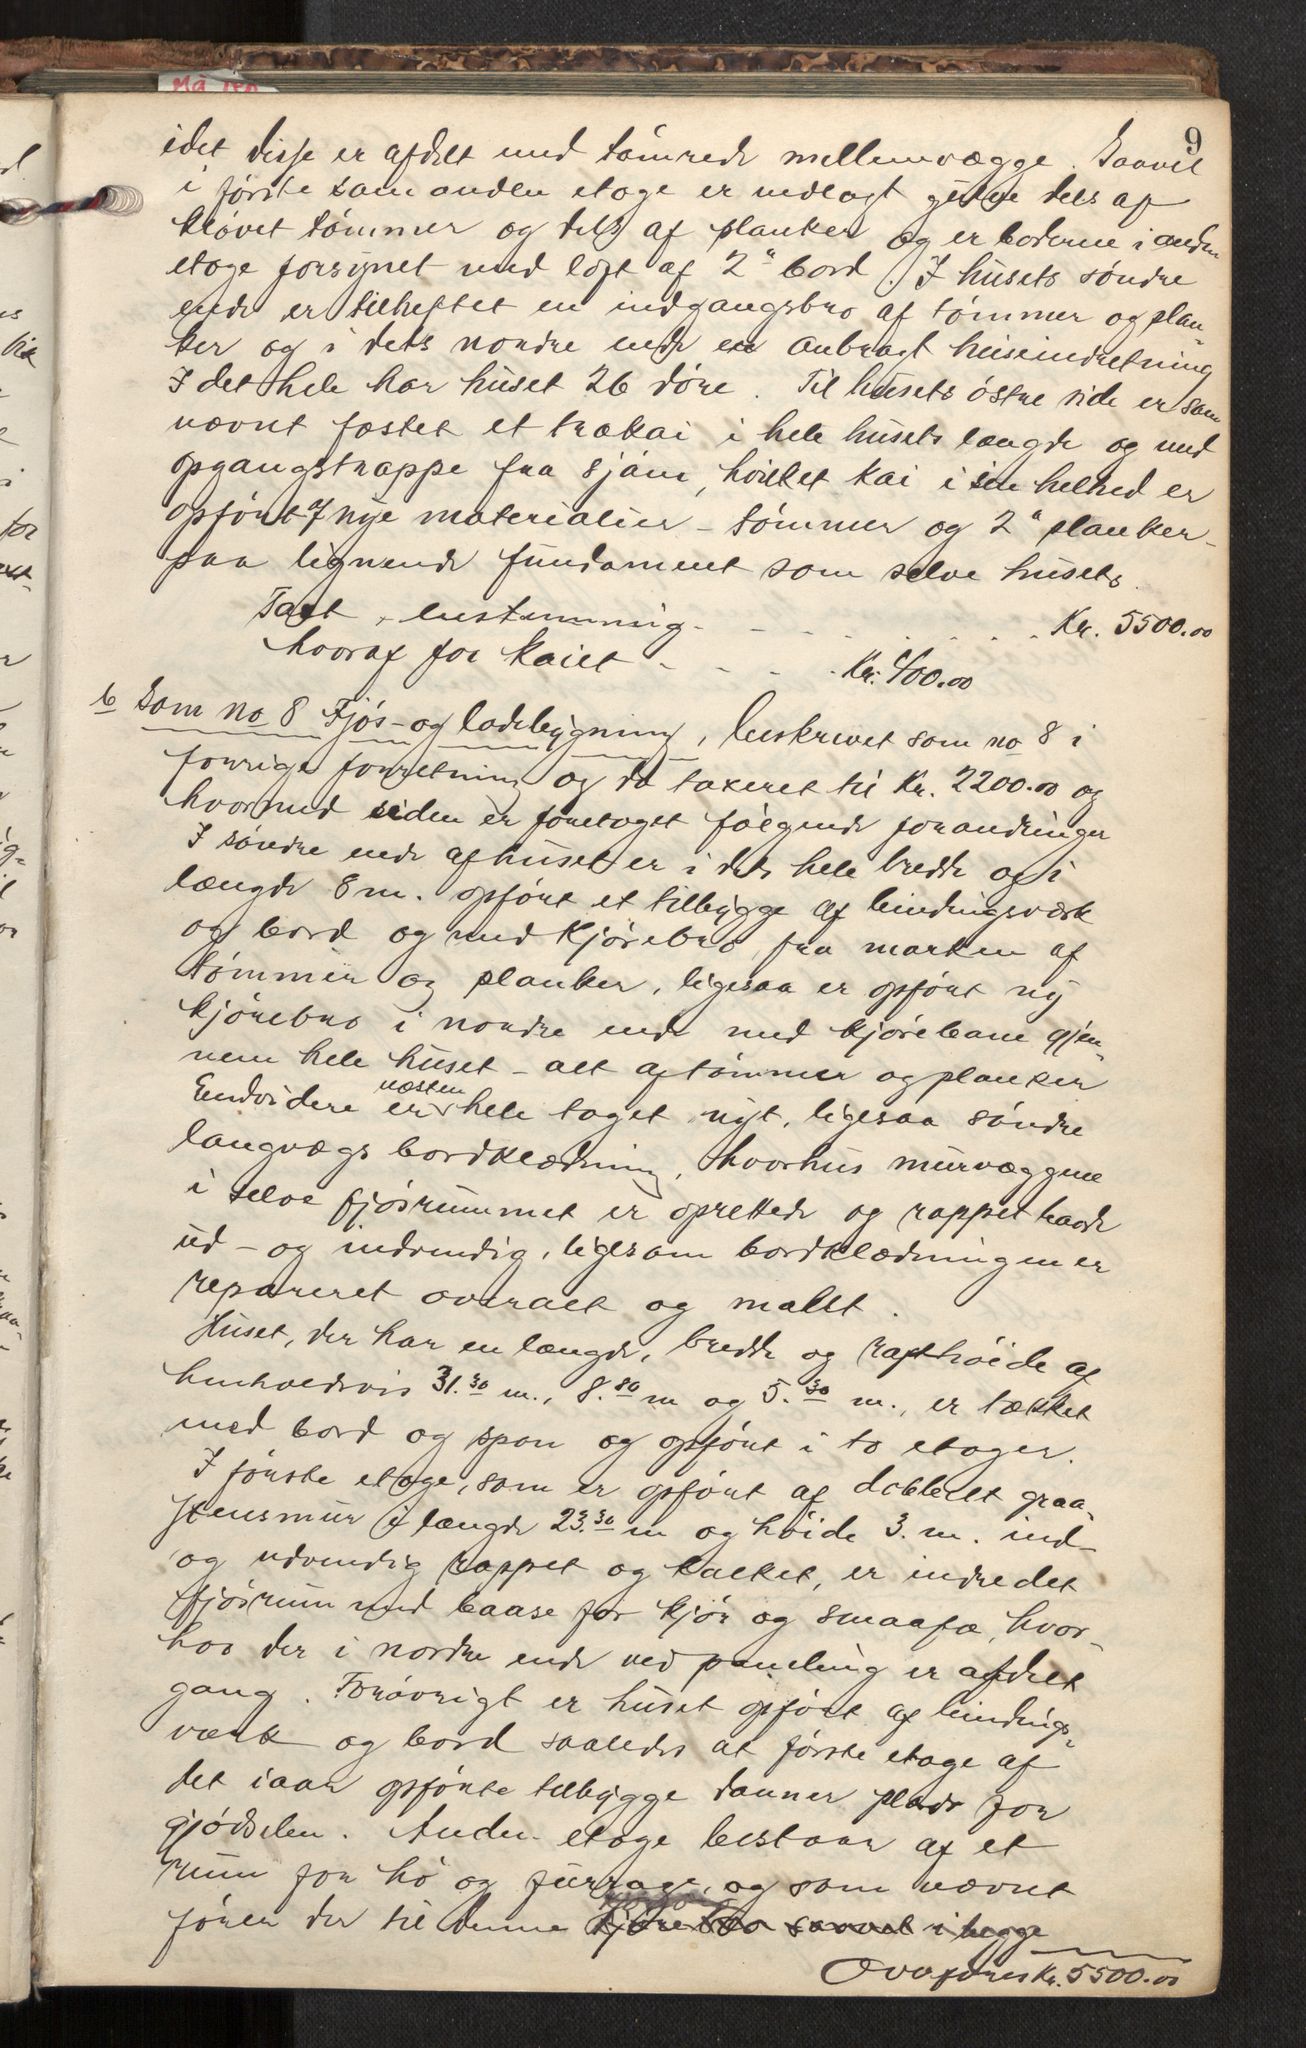 9
idet disse er afdelt med tømrede mellemvægge. Saavel
i første som anden etage er nedlagt gulve dels af
kløvet tømmer og dels af planker og er boderne i anden
etage forsynet med loft af 2" bord. I husets søndre
ende er tilheftet en indgangsbro af tømmer og plan-
ker og i dets nordre ende en anbragt heiseindretning
I det hele har huset 26 døre. Til husets østre side er som
nævnt fæstet et trækai i hele husets længde og med
opgangstrappe fra sjøen, hvilket kai i sin helhed er
opført af nye materialier - tømmer og 2" planker -
paa lignende fundament som selve husets.
Taxt, enstemmig - - - . . . . . Kr. 5500.00
hvoraf for kaiet - - - - Kr. 400.00
b Som no 8 Fjøs- og ladebygning, beskrevet som no 8 i
forrige forretning og da taxeret til Kr. 2200.00 og
hvormed siden er foretaget følgende forandringer
I søndre ende af huset er i dets hele bredde og i
længde 8 m. opført et tilbygge af bindingsværk
og bord og med kjørebro fra marken af
tømmer og planker, ligesaa er opført ny
kjørebro i nordre ende med kjørebane gjen-
nem hele huset - alt af tømmer og planker
Endvidere er næsten hele taget nyt, ligesaa søndre
langvægs bordklædning, hvorhos murvæggene
i selve fjøsrummet er oprettede og rappet baade
ud- og indvendig, ligesom bordklædningen er
repareret overalt og malet.
Huset, der har en længde, bredde og rafthøide af
henholdsvis 31.30 m., 8.80 m og 5.30 m., er tækket
med bord og spon og opført i to etager.
I første etage, som er opført af dobbelt graa-
stensmur i længde 23.30 m og høide 3. m. ind-
og udvendig rappet og kalket, er indredet
fjøsrum med baase for kjør og smaafæ, hvor-
hos der i nordre ende ved paneling er afdelt
gang. Forøvrigt er huset opført af bindings-
værk og bord saaledes at første etage af
det iaar opførte tilbygge danner plads for
gjødselen. Anden etage bestaar af et
rum for hø og furrage, og som nævnt
fører der til denne kjørebro saavel i begge
Overføres Kr. 5500.00